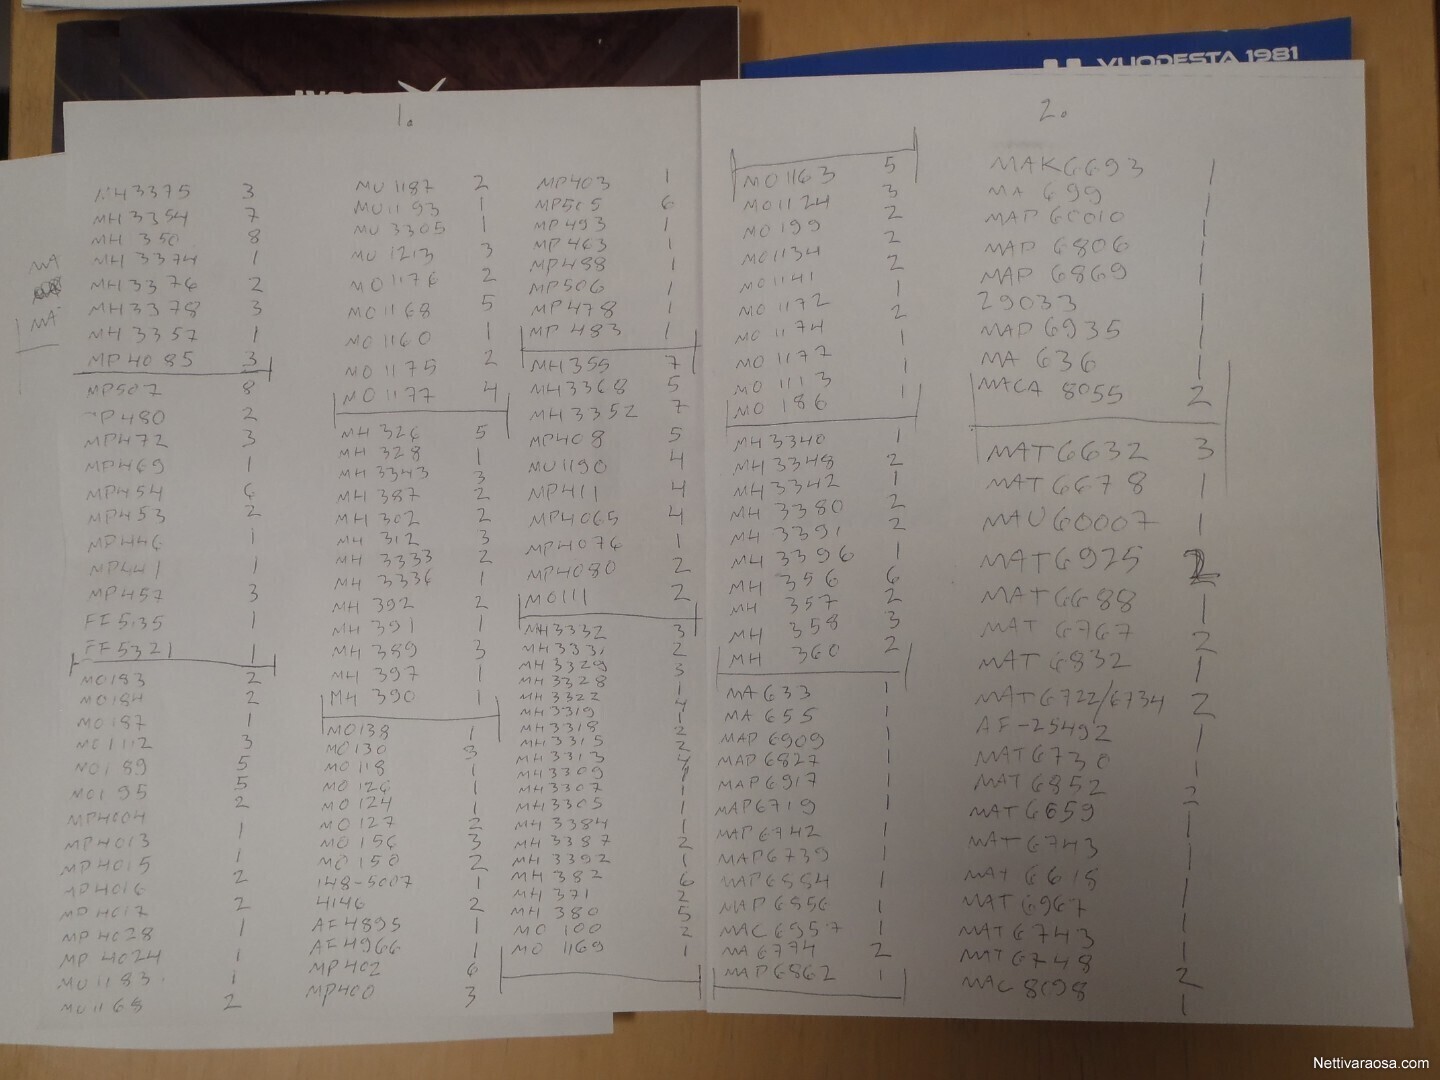 VUODESTA 1981
1.
MH3375 3
MH3354 7
MH 350 8
MH 3374 1
MH3376 2
MH3378 3
MH 3357 1
MP4085 3
MP507 8
MP480 2
MP472 3
MP469 1
MP454 6
MP453 2
MP446 1
MP441 1
MP457 3
FF5135 1
FF5321 1
MO183 2
MO184 2
MO187 1
MO1112 3
MO189 5
MO195 5
MP4004 2
MP4013 1
MP4015 1
MP4016 2
MP4017 2
MP4028 1
MP 4024 1
MO1183 1
MO1168 2
MO1187 2
MO1193 1
MO 3305 1
MO 1213 3
MO1176 2
MO1168 5
MO1160 1
MO1175 2
MO1177 4
MH 326 5
MH 328 1
MH 3343 3
MH 387 2
MH 302 2
MH 312 3
MH 3333 2
MH 3336 1
MH 392 2
MH 391 1
MH 389 3
MH 397 1
MH 390 1
MO138 1
MO130 3
MO118 1
MO126 1
MO124 1
MO127 2
MO156 3
MO150 2
148-5007 1
4146 2
AF4895 1
AF4966 1
MP402 6
MP400 3
MP403 1
MP505 6
MP493 1
MP463 1
MP488 1
MP506 1
MP478 1
MP 483 1
MH355 7
MH3368 5
MH3352 7
MP408 5
MO1190 4
MP411 4
MP4065 4
MP4076 1
MP4080 2
MO111 2
MH3332 3
MH3331 2
MH3329 3
MH3328 1
MH3322 4
MH3319 1
MH3318 2
MH3315 2
MH3313 4
MH3309 1
MH3307 1
MH3305 1
MH3384 1
MH3387 2
MH3392 1
MH 382 6
MH 371 2
MH 380 5
MO 100 2
MO 1169 1
2.
MO1163 5
MO1124 3
MO199 2
MO1134 2
MO1141 2
MO 1172 1
MO 1174 2
MO 1177 1
MO 1113 1
MO 186 1
MH 3340 1
MH 3348 2
MH 3342 1
MH 3380 2
MH 3391 2
MH 3396 1
MH 356 6
MH 357 2
MH 358 3
MH 360 2
MA 633 1
MA 655 1
MAP 6909 1
MAP 6827 1
MAP 6917 1
MAP6719 1
MAP 6742 1
MAP6739 1
MAP6554 1
MAP 6856 1
MAC 6957 1
MA6774 2
MAP6862 1
MAK6693 1
MA 699 1
MAP 60010 1
MAP 6806 1
MAP 6869 1
29033 1
MAP 6935 1
MA 636 1
MACA 8055 2
MAT6632 3
MAT6678 1
MAU60007 1
MAT6925 2
MAT6688 1
MAT 6767 2
MAT 6832 1
MAT6722/6734 2
AF-25492 1
MAT6730 1
MAT 6852 2
MAT6659 1
MAT6743 1
MAT 6615 1
MAT 6967 1
MAT6743 1
MAT6748 2
MAC 8098 1
Nettivaraosa.com